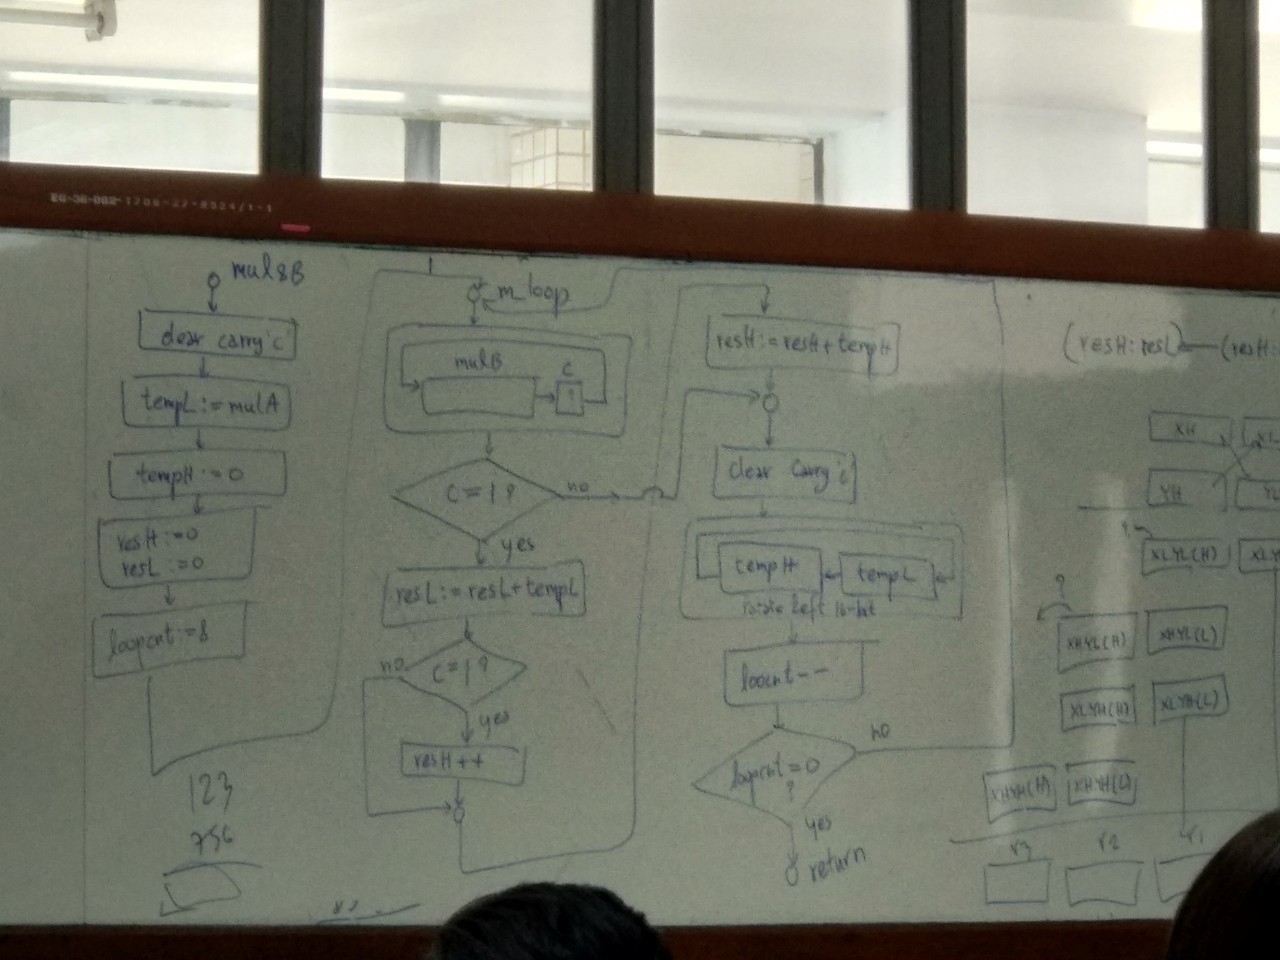 mul8B
clear carry 'c'
tempL:=mulA
tempH:=0
resH:=0
resL:=0
loopcnt:=8
123
756
m_loop
mulB
C
C=1?
no
yes
resL:=resL+tempL
no
C=1?
yes
resH++
resH:=resH+tempH
clear carry 'c'
tempH
tempL
rotate left 16-bit
loopcnt--
loopcnt=0
?
no
yes
return
(resH:resL) (resH:
XH XL
YH YL
?
XLYL(H)
?
XHYL(H) XHYL(L)
XLYH(H) XLYH(L)
XHYH(H) XHYH(L)
r3 r2 r1